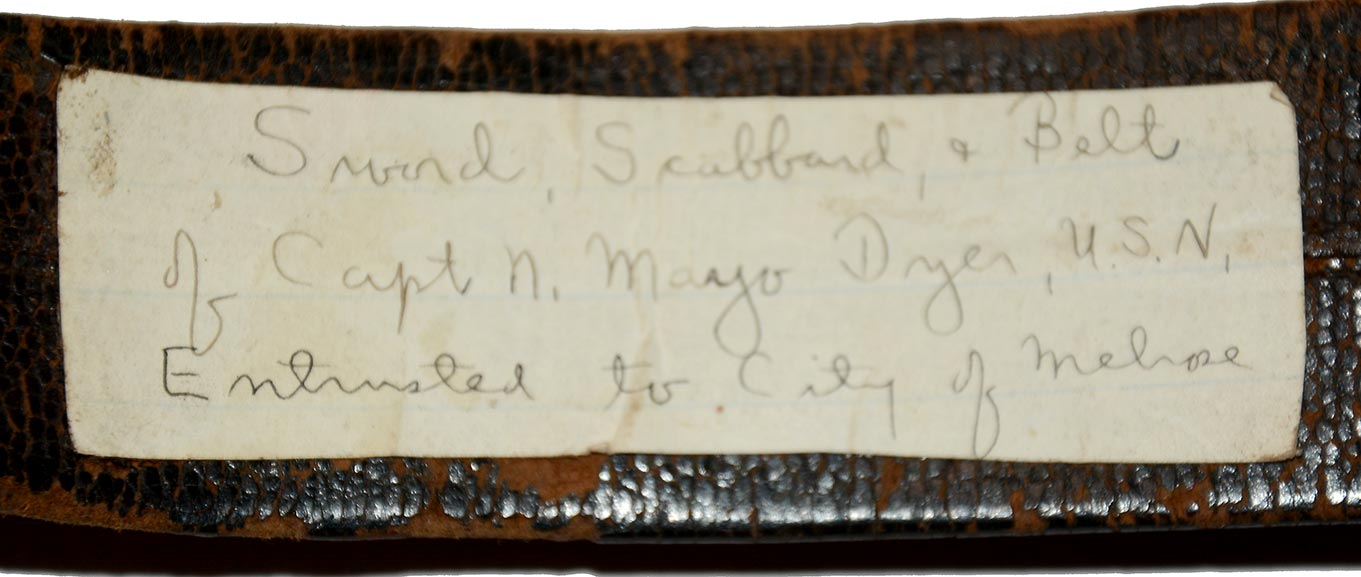 Sword, Scabbard, & Belt
of Capt N. Mayo Dyer, U.S.N.
Entrusted to City of Melrose